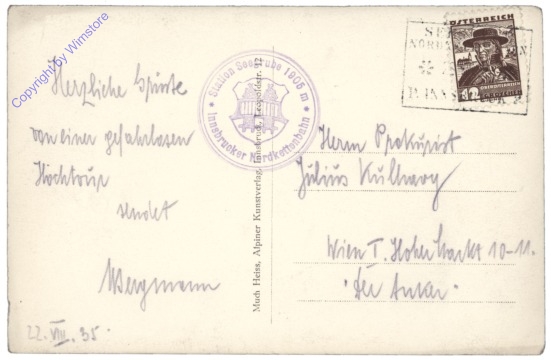 Copyright by Winstore
Herzliche Grüße
von einer gefahrlosen
Hochtour
sendet
Bergmann
22. VIII. 35.
Station Seegrube 1905 m
Innsbrucker Nordkettenbahn
Much Heiss, Alpiner Kunstverlag, Innsbruck, Leopoldstr. 12
ÖSTERREICH
12
Herrn Prokurist
Julius Kulhavy
Wien I. Hoher Markt 10-11.
"Der Anker"